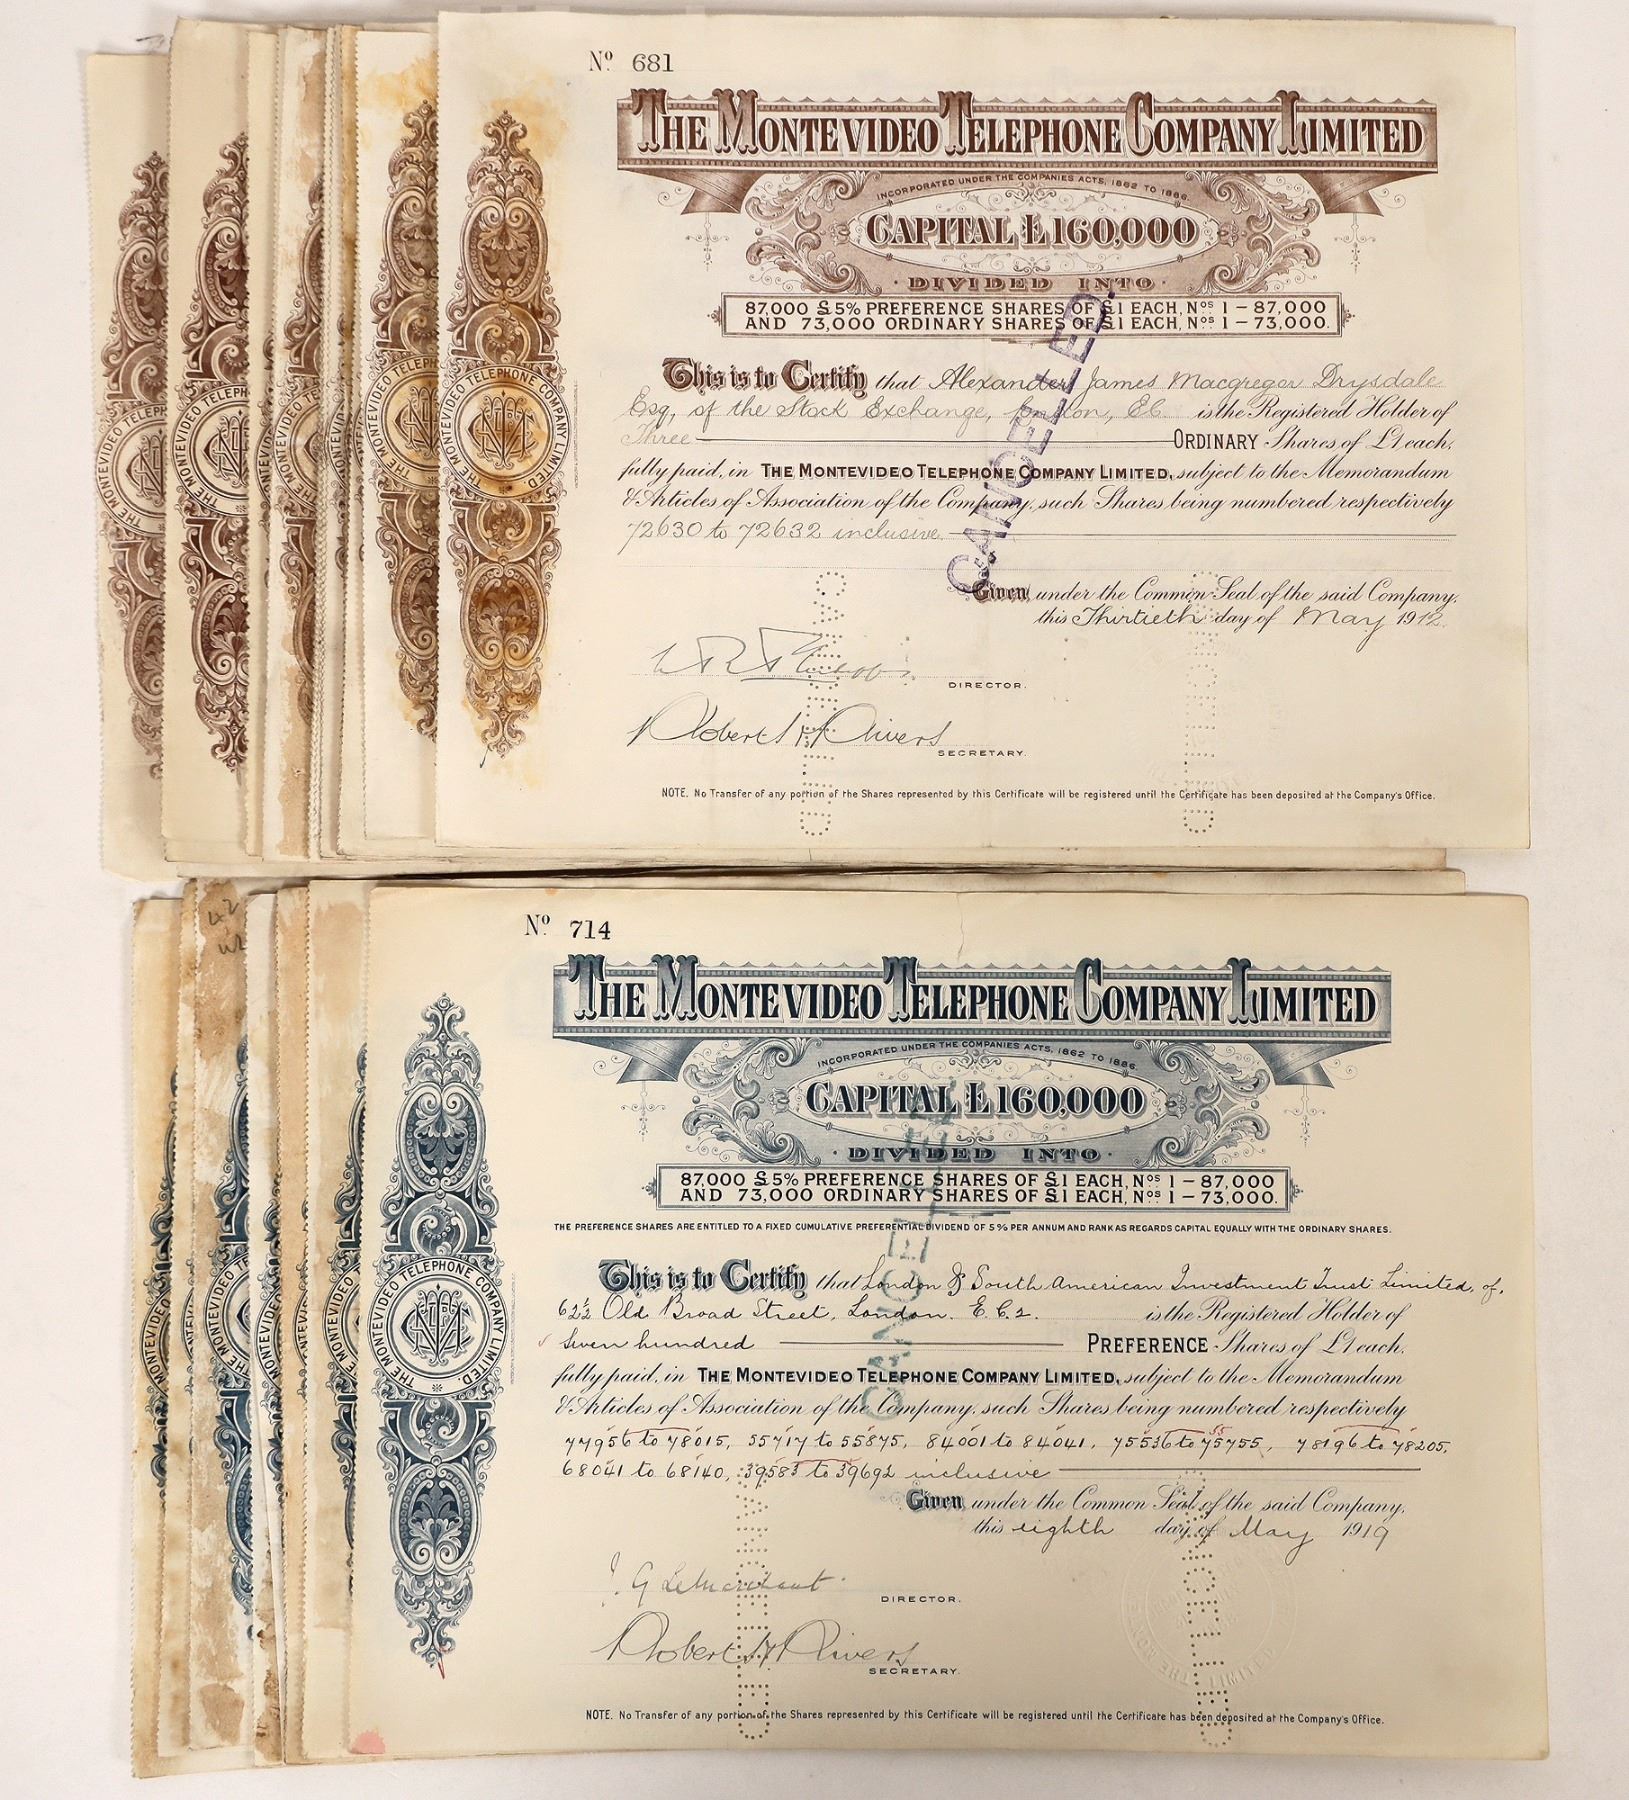 Nº 681
THE MONTEVIDEO TELEPHONE COMPANY LIMITED
INCORPORATED UNDER THE COMPANIES ACTS, 1862 TO 1886.
CAPITAL £160,000
· DIVIDED INTO ·
87,000 £5% PREFERENCE SHARES OF £1 EACH, Nos 1 – 87,000
AND 73,000 ORDINARY SHARES OF £1 EACH, Nos 1 – 73,000.
This is to Certify that Alexander James Macgregor Drysdale
Esq, of the Stock Exchange, London, EC. is the Registered Holder of
Three ORDINARY Shares of £1 each,
fully paid, in THE MONTEVIDEO TELEPHONE COMPANY LIMITED, subject to the Memorandum
& Articles of Association of the Company, such Shares being numbered respectively
72630 to 72632 inclusive
CANCELLED.
Given under the Common Seal of the said Company,
this Thirtieth day of May 1912.
DIRECTOR.
Robert H Rivers
SECRETARY.
NOTE. No Transfer of any portion of the Shares represented by this Certificate will be registered until the Certificate has been deposited at the Company's Office.
CANCELLED
CANCELLED
THE MONTEVIDEO TELEPHONE COMPANY LIMITED.
42
Nº 714
THE MONTEVIDEO TELEPHONE COMPANY LIMITED
INCORPORATED UNDER THE COMPANIES ACTS, 1862 TO 1886.
CAPITAL £160,000
· DIVIDED INTO ·
87,000 £5% PREFERENCE SHARES OF £1 EACH, Nos 1 – 87,000
AND 73,000 ORDINARY SHARES OF £1 EACH, Nos 1 – 73,000.
THE PREFERENCE SHARES ARE ENTITLED TO A FIXED CUMULATIVE PREFERENTIAL DIVIDEND OF 5% PER ANNUM AND RANK AS REGARDS CAPITAL EQUALLY WITH THE ORDINARY SHARES.
This is to Certify that London & South American Investment Trust Limited, of,
62½ Old Broad Street, London. E.C.2. is the Registered Holder of
Seven hundred PREFERENCE Shares of £1 each,
fully paid, in THE MONTEVIDEO TELEPHONE COMPANY LIMITED, subject to the Memorandum
& Articles of Association of the Company, such Shares being numbered respectively
77956 to 78015, 55717 to 55875, 84001 to 84041, 75536 to 75755, 78196 to 78205,
68041 to 68140, 39583 to 39692 inclusive
CANCELLED
Given under the Common Seal of the said Company,
this eighth day of May 1919
DIRECTOR.
Robert H Rivers
SECRETARY.
NOTE. No Transfer of any portion of the Shares represented by this Certificate will be registered until the Certificate has been deposited at the Company's Office.
CANCELLED
CANCELLED
THE MONTEVIDEO TELEPHONE COMPANY LIMITED.